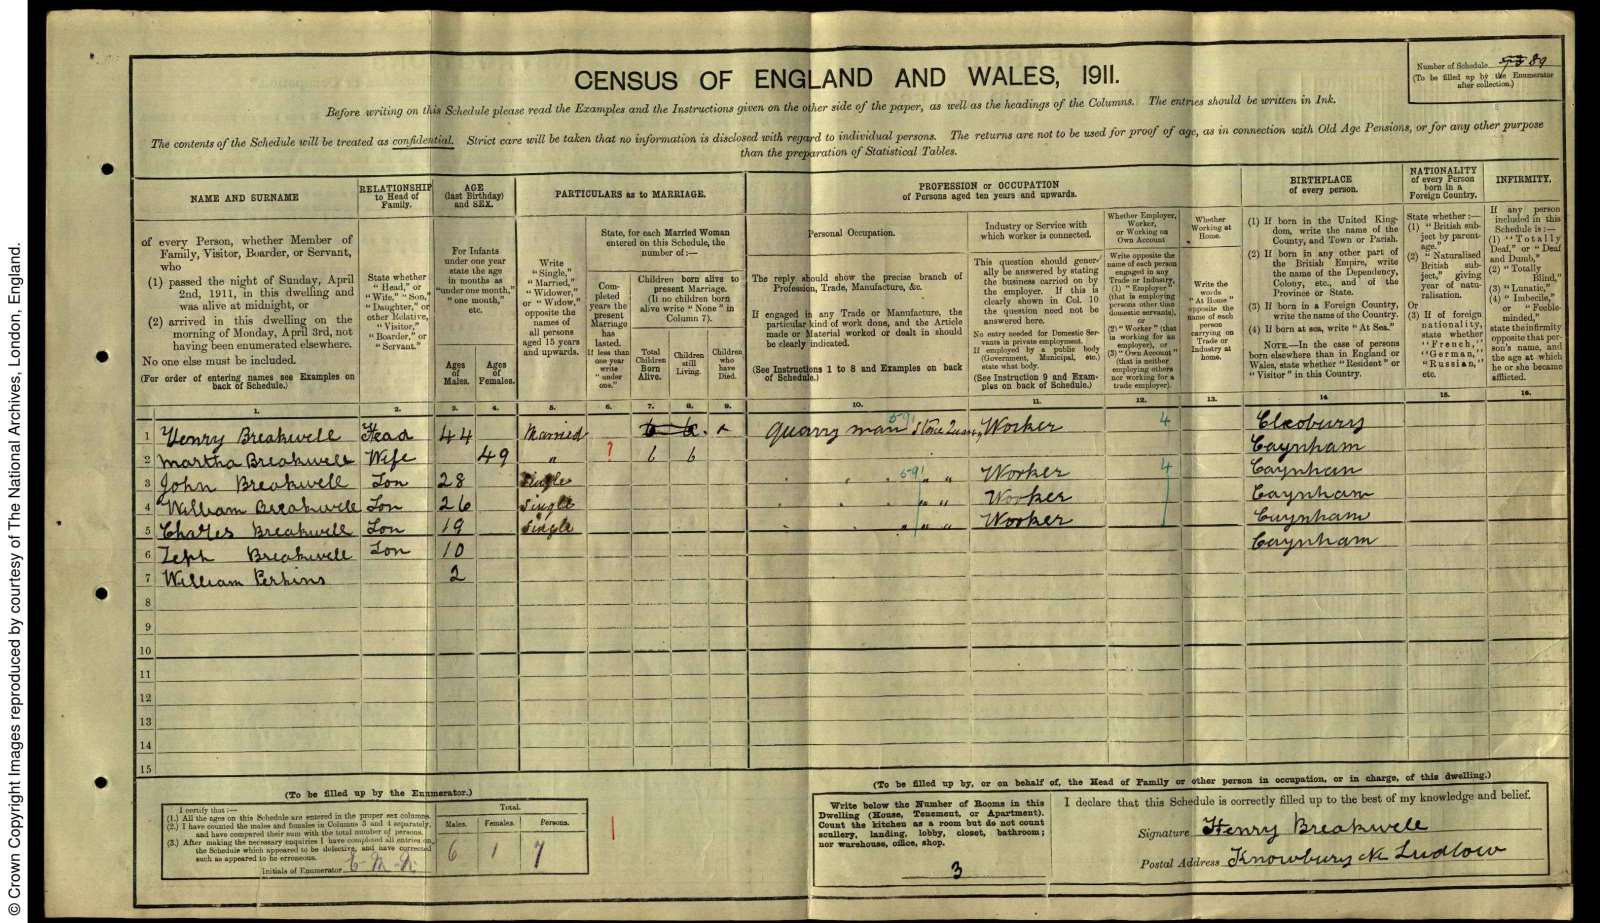 © Crown Copyright Images reproduced by courtesy of The National Archives, London, England.
CENSUS OF ENGLAND AND WALES, 1911.
Number of Schedule 89
(To be filled up by the Enumerator
after collection.)
Before writing on this Schedule please read the Examples and the Instructions given on the other side of the paper, as well as the headings of the Columns. The entries should be written in Ink.
The contents of the Schedule will be treated as confidential. Strict care will be taken that no information is disclosed with regard to individual persons. The returns are not to be used for proof of age, as in connection with Old Age Pensions, or for any other purpose
than the preparation of Statistical Tables.
NAME AND SURNAME
of every Person, whether Member of
Family, Visitor, Boarder, or Servant,
who
(1) passed the night of Sunday, April
2nd, 1911, in this dwelling and
was alive at midnight, or
(2) arrived in this dwelling on the
morning of Monday, April 3rd, not
having been enumerated elsewhere.
No one else must be included.
(For order of entering names see Examples on
back of Schedule.)
RELATIONSHIP
to Head of
Family.
State whether
"Head," or
"Wife," "Son,"
"Daughter," or
other Relative,
"Visitor,"
"Boarder," or
"Servant."
AGE
(last Birthday)
and SEX.
For Infants
under one year
state the age
in months as
"under one month,"
"one month,"
etc.
Ages
of
Males.
Ages
of
Females.
PARTICULARS as to MARRIAGE.
Write
"Single,"
"Married,"
"Widower,"
or "Widow,"
opposite the
names of
all persons
aged 15 years
and upwards.
State, for each Married Woman
entered on this Schedule, the
number of:—
Completed
years the
present
Marriage
has
lasted.
If less than
one year
write
"under
one."
Children born alive to
present Marriage.
(If no children born
alive write "None" in
Column 7).
Total
Children
Born
Alive.
Children
still
Living.
Children
who
have
Died.
PROFESSION or OCCUPATION
of Persons aged ten years and upwards.
Personal Occupation.
The reply should show the precise branch of
Profession, Trade, Manufacture, &c.
If engaged in any Trade or Manufacture, the
particular kind of work done, and the Article
made or Material worked or dealt in should
be clearly indicated.
(See Instructions 1 to 8 and Examples on back
of Schedule.)
Industry or Service with
which worker is connected.
This question should generally
be answered by stating
the business carried on by
the employer. If this is
clearly shown in Col. 10
the question need not be
answered here.
No entry needed for Domestic Servants
in private employment.
If employed by a public body
(Government, Municipal, etc.)
state what body.
(See Instruction 9 and Examples
on back of Schedule.)
Whether Employer,
Worker,
or Working on
Own Account
Write opposite the
name of each person
engaged in any
Trade or Industry,
(1) "Employer"
(that is employing
persons other than
domestic servants),
or
(2) "Worker" (that
is working for an
employer), or
(3) "Own Account"
(that is neither
employing others
nor working for a
trade employer).
Whether
Working at
Home.
Write the
words
"At Home"
opposite the
name of each
person
carrying on
Trade or
Industry at
home.
BIRTHPLACE
of every person.
(1) If born in the United Kingdom,
write the name of the
County, and Town or Parish.
(2) If born in any other part of
the British Empire, write
the name of the Dependency,
Colony, etc., and of the
Province or State.
(3) If born in a Foreign Country,
write the name of the Country.
(4) If born at sea, write "At Sea."
NOTE.—In the case of persons
born elsewhere than in England or
Wales, state whether "Resident" or
"Visitor" in this Country.
NATIONALITY
of every Person
born in a
Foreign Country.
State whether:—
(1) "British subject
by parentage,"
(2) "Naturalised
British subject,"
giving
year of naturalisation.
Or
(3) If of foreign
nationality,
state whether
"French,"
"German,"
"Russian,"
etc.
INFIRMITY.
If any person
included in this
Schedule is:—
(1) "Totally
Deaf," or "Deaf
and Dumb,"
(2) "Totally
Blind,"
(3) "Lunatic,"
(4) "Imbecile,"
or "Feeble-minded,"
state the infirmity
opposite that person's
name, and
the age at which
he or she became
afflicted.
1. 2. 3. 4. 5. 6. 7. 8. 9. 10. 11. 12. 13. 14 15. 16.
1 Henry Breakwell Head 44 Married 6 6 quarry man 591 Stone Worker 4 Cleobury
2 Martha Breakwell Wife 49 " ? 6 6 Caynham
3 John Breakwell Son 28 Single 591 " " Worker 4 Caynham
4 William Breakwell Son 26 Single " " Worker Caynham
5 Charles Breakwell Son 19 Single " " Worker Caynham
6 Zeph Breakwell Son 10 Caynham
7 William Perkins 2
8
9
10
11
12
13
14
15
(To be filled up by the Enumerator.)
I certify that:—
(1.) All the ages on this Schedule are entered in the proper sex columns.
(2.) I have counted the males and females in Columns 3 and 4 separately,
and have compared their sum with the total number of persons.
(3.) After making the necessary enquiries I have completed all entries on
the Schedule which appeared to be defective, and have corrected
such as appeared to be erroneous.
Initials of Enumerator
Total.
Males. Females. Persons.
6 1 7
(To be filled up by, or on behalf of, the Head of Family or other person in occupation, or in charge, of this dwelling.)
Write below the Number of Rooms in this
Dwelling (House, Tenement, or Apartment).
Count the kitchen as a room but do not count
scullery, landing, lobby, closet, bathroom;
nor warehouse, office, shop.
3
I declare that this Schedule is correctly filled up to the best of my knowledge and belief.
Signature Henry Breakwell
Postal Address Knowbury Nr Ludlow